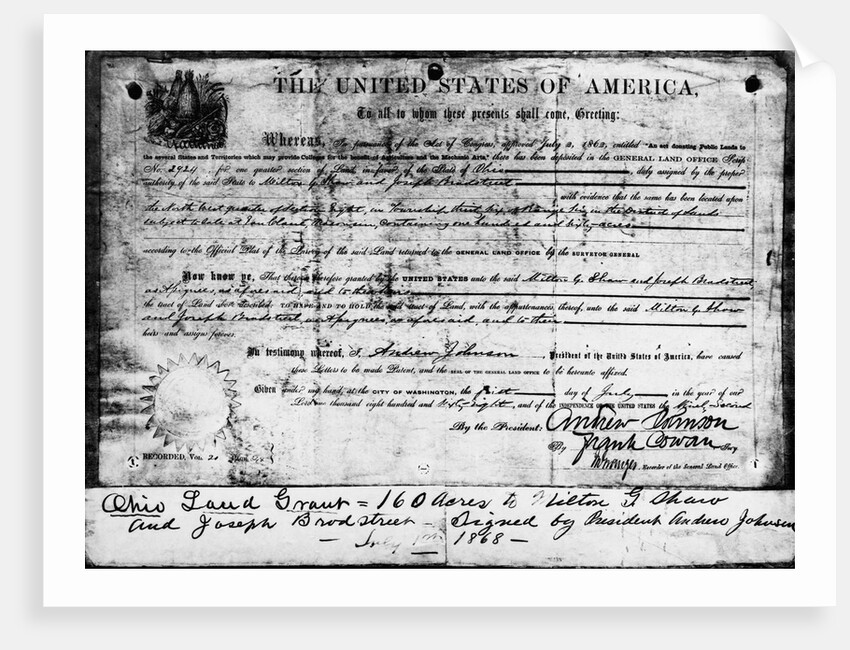 THE UNITED STATES OF AMERICA,
To all to whom these presents shall come, Greeting:
Whereas, In pursuance of the Act of Congress, approved July 2, 1862, entitled "An act donating Public Lands to
the several States and Territories which may provide Colleges for the benefit of Agriculture and the Mechanic Arts," there has been deposited in the GENERAL LAND OFFICE Scrip
No. 2924 for one quarter section of Land in favor of the State of Ohio, duly assigned by the proper
authority of the said State to Milton G. Shaw and Joseph Bradstreet
with evidence that the same has been located upon
the North West quarter of Section Eight, in Township thirty six of Range six in the District of Lands
subject to sale at Eau Claire, Wisconsin, Containing one hundred and sixty acres
according to the Official Plat of the Survey of the said Land returned to the GENERAL LAND OFFICE by the SURVEYOR GENERAL
Now know ye, That there is therefore granted by the UNITED STATES unto the said Milton G. Shaw and Joseph Bradstreet
as Assignees, as aforesaid, and to their heirs
the tract of Land above described: TO HAVE AND TO HOLD the said tract of Land, with the appurtenances thereof, unto the said Milton G. Shaw
and Joseph Bradstreet, as Assignees, as aforesaid, and to their
heirs and assigns forever.
In testimony whereof, I, Andrew Johnson, President of the United States of America, have caused
these Letters to be made Patent, and the SEAL OF THE GENERAL LAND OFFICE to be hereunto affixed.
Given under my hand, at the CITY OF WASHINGTON, the day of July in the year of our
Lord one thousand eight hundred and Sixty-eight, and of the INDEPENDENCE OF THE UNITED STATES the Ninety-Second
By the President: Andrew Johnson
By Frank Cowan Sec'y
RECORDED, Vol. 20 Recorder of the General Land Office.
Ohio Land Grant = 160 Acres to Milton G. Shaw
and Joseph Brodstreet - Signed by President Andrew Johnson
- July 1868 -